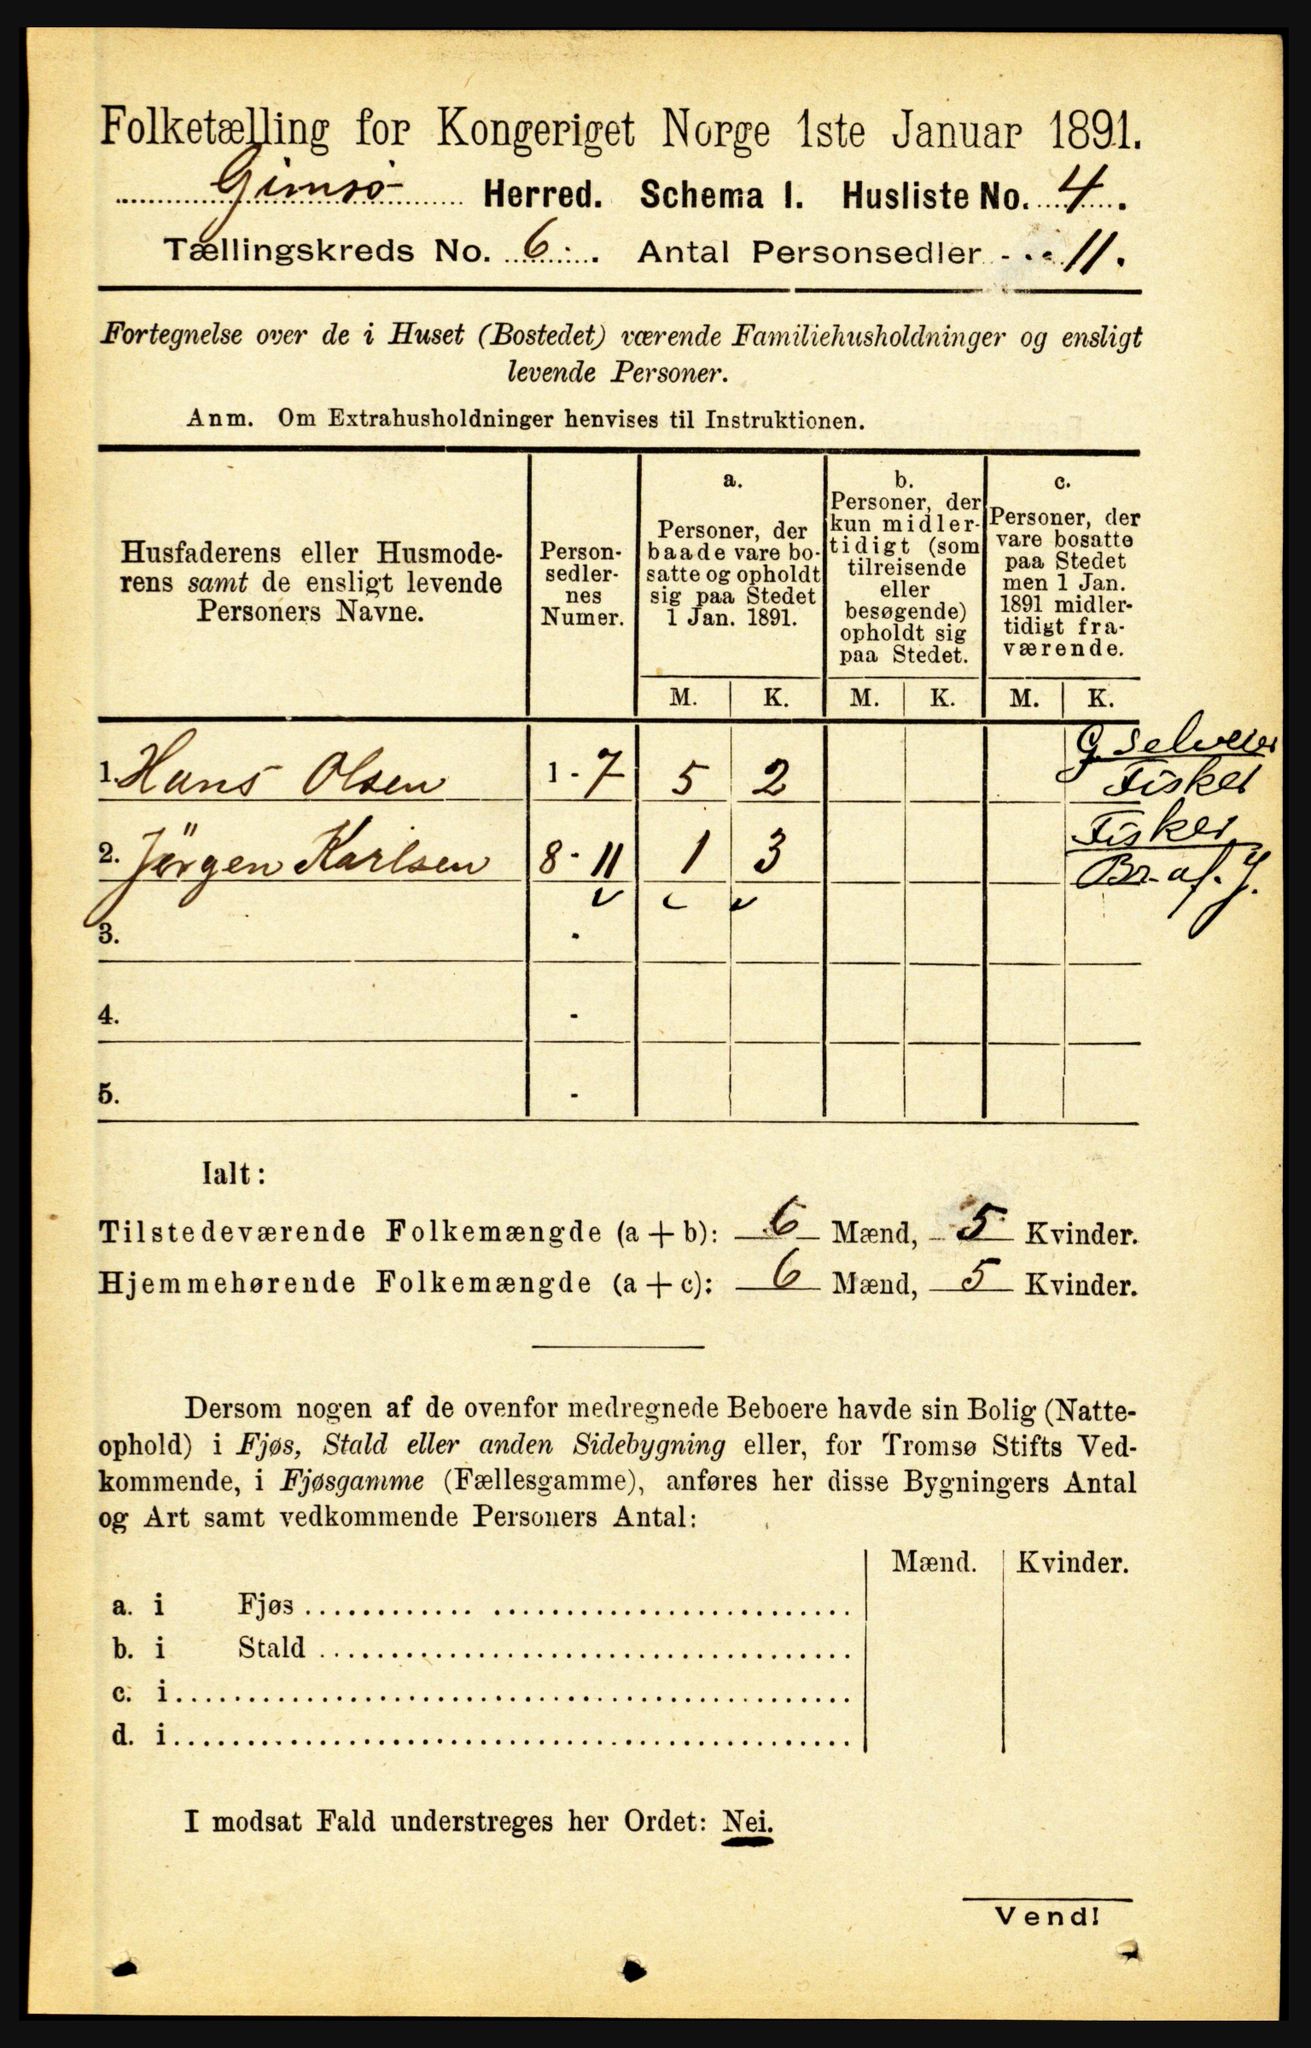 Folketælling for Kongeriget Norge 1ste Januar 1891.
Gimsø Herred. Schema I. Husliste No. 4.
Tællingskreds No. 6. Antal Personsedler 11.
Fortegnelse over de i Huset (Bostedet) værende Familiehusholdninger og ensligt
levende Personer.
Anm. Om Extrahusholdninger henvises til Instruktionen.
Husfaderens eller Husmode-
rens samt de ensligt levende
Personers Navne.
Person-
sedler-
nes
Numer.
a.
Personer, der
baade vare bo-
satte og opholdt
sig paa Stedet
1 Jan. 1891.
b.
Personer, der
kun midler-
tidigt (som
tilreisende
eller
besøgende)
opholdt sig
paa Stedet.
c.
Personer, der
vare bosatte
paa Stedet
men 1 Jan.
1891 midler-
tidigt fra-
værende.
M. K. M. K. M. K.
1. Hans Olsen 1 - 7 5 2 G. Selveier
Fisker
2. Jörgen Karlsen 8 - 11 1 3 Fisker
Br. af. J.
3. -
4. -
5. -
Ialt:
Tilstedeværende Folkemængde (a + b): 6 Mænd, 5 Kvinder.
Hjemmehørende Folkemængde (a + c): 6 Mænd, 5 Kvinder.
Dersom nogen af de ovenfor medregnede Beboere havde sin Bolig (Natte-
ophold) i Fjøs, Stald eller anden Sidebygning eller, for Tromsø Stifts Ved-
kommende, i Fjøsgamme (Fællesgamme), anføres her disse Bygningers Antal
og Art samt vedkommende Personers Antal:
Mænd. Kvinder.
a. i Fjøs
b. i Stald
c. i
d. i
I modsat Fald understreges her Ordet: Nei.
Vend!